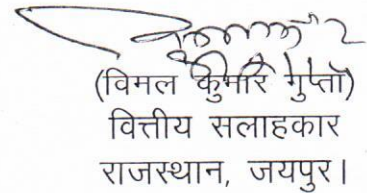 (विमल कुमार गुप्ता)
वित्तीय सलाहकार
राजस्थान, जयपुर।